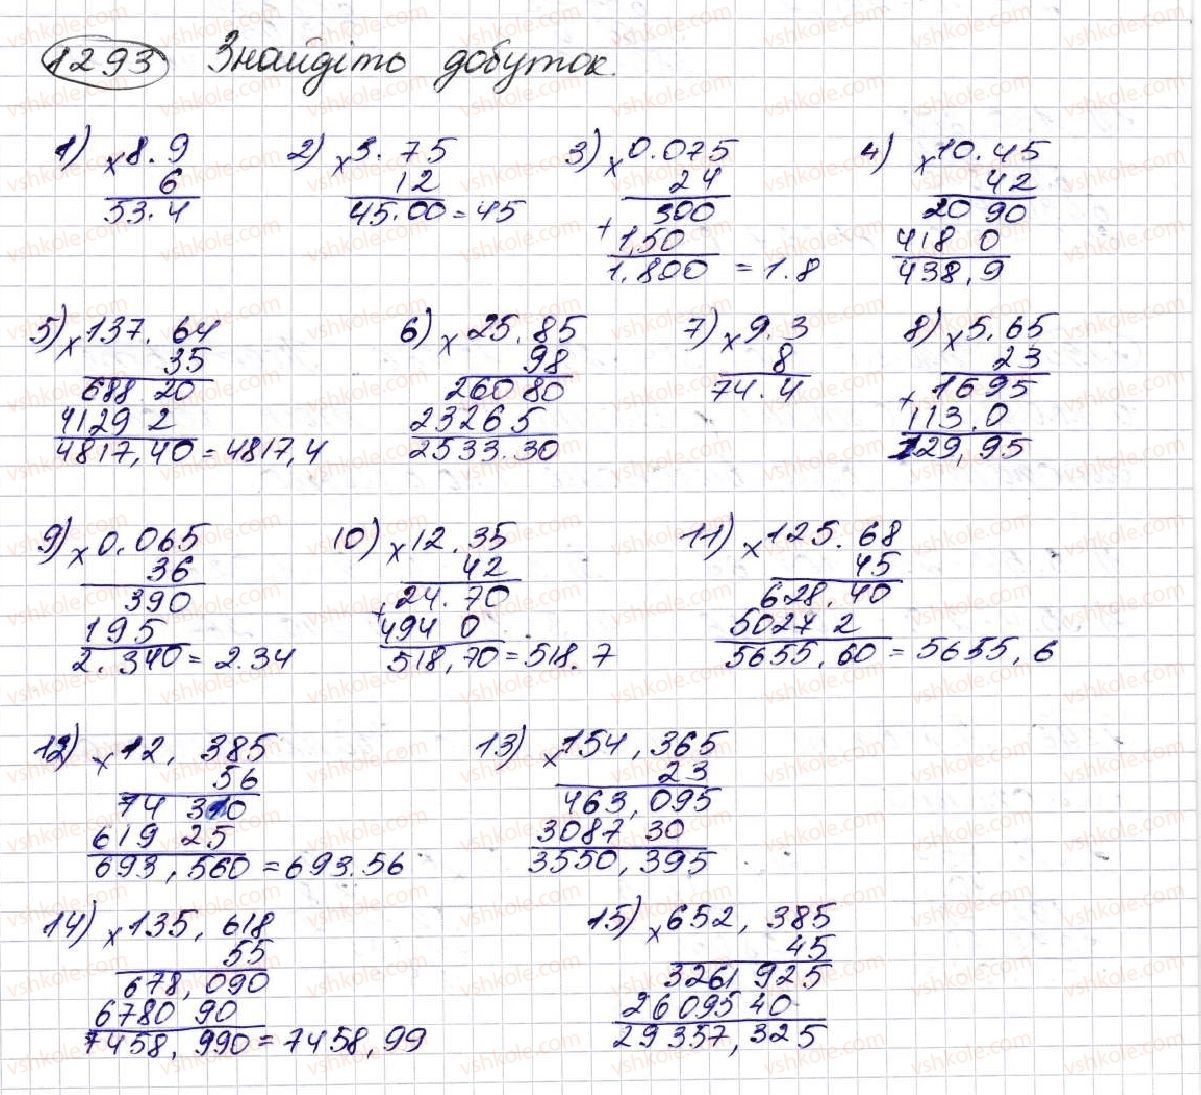 1293 Знайдіть добуток.
1) × 8.9 2) × 3.75 3) × 0.075 4) × 10.45
6 12 24 42
53.4 45.00 = 45 300 20 90
+ 1,50 418 0
1,800 = 1.8 438,9
5) × 137.64 6) × 25.85 7) × 9.3 8) × 5,65
35 98 8 23
688 20 260 80 74.4 + 1695
4129 2 23265 113.0
4817,40 = 4817,4 2533.30 129,95
9) × 0.065 10) × 12.35 11) × 125.68
36 42 45
390 + 24.70 628,40
195 494 0 5027 2
2.340 = 2.34 518,70 = 518.7 5655,60 = 5655,6
12) × 12,385 13) × 154,365
56 23
74 310 463,095
619 25 3087 30
693,560 = 693.56 3550,395
14) × 135,618 15) × 652,385
55 45
678,090 3261 925
6780 90 26095 40
7458,990 = 7458,99 29357,325